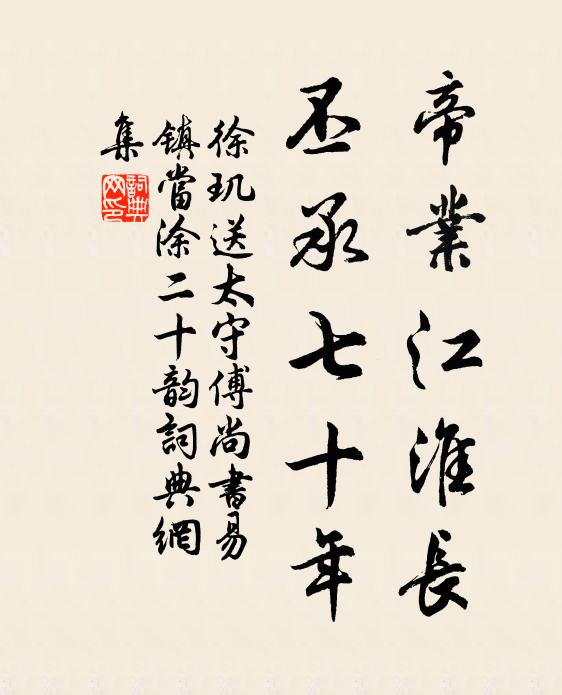 帝業江淮長
丕承七十年
徐玑送太守傅尚書易
镇當涂二十韵詞典網
集
詞典
网印